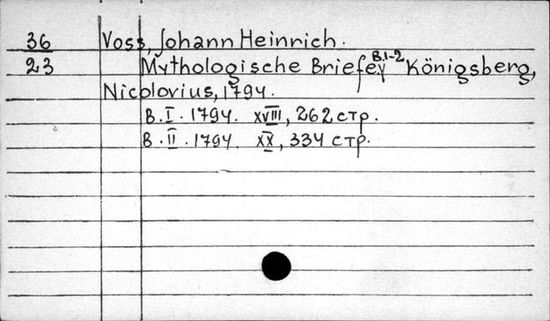 36 Voss, Johann Heinrich.
23 Mythologische Briefe B.1-2 Königsberg,
Nicolovius, 1794.
B. I. 1794. XVIII, 262 стр.
B. II. 1794. XX, 334 стр.